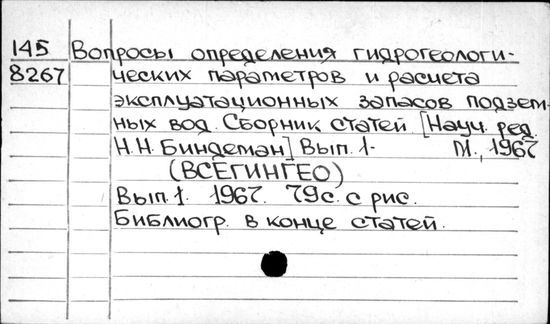 145 Вопросы определения гидрогеологи-
8267 ческих параметров и расчета
эксплуатационных запасов подзем-
ных вод. Сборник статей [Науч. ред.
Н.Н. Биндеман] Вып. 1- М., 1967
(ВСЕГИНГЕО)
Вып. 1. 1967. 79с. с рис.
Библиогр. в конце статей.